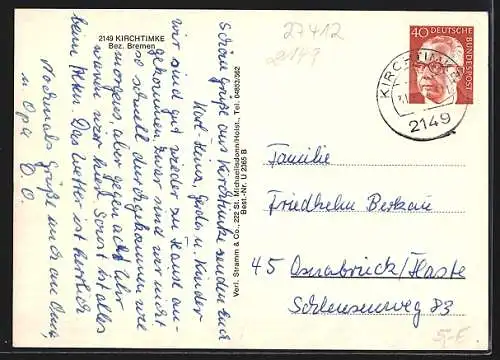 2149 KIRCHTIMKE
Bez. Bremen
27412
2149
Schöne Grüße aus Kirchtimke senden Euch
Karl-Heinz, Gerda u. Kinder
wir sind gut wieder zu Hause an-
gekommen, zwar sind wir nicht
so schnell durchgekommen wie
morgens, aber gegen acht Uhr
waren wir hier. Sonst ist alles
beim Alten. Das Wetter ist herrlich
Nochmals Grüße auch an Oma
u. Opa
D. O.
Verl. Stramm & Co., 222 St. Michaelisdonn/Holst., Tel. 04853/362
Best.-Nr. U 2365 B
40 DEUTSCHE
BUNDESPOST
KIRCHTIMKE
2149
Familie
Friedhelm
45 Osnabrück/Haste
Schleusenweg 83
5,-E